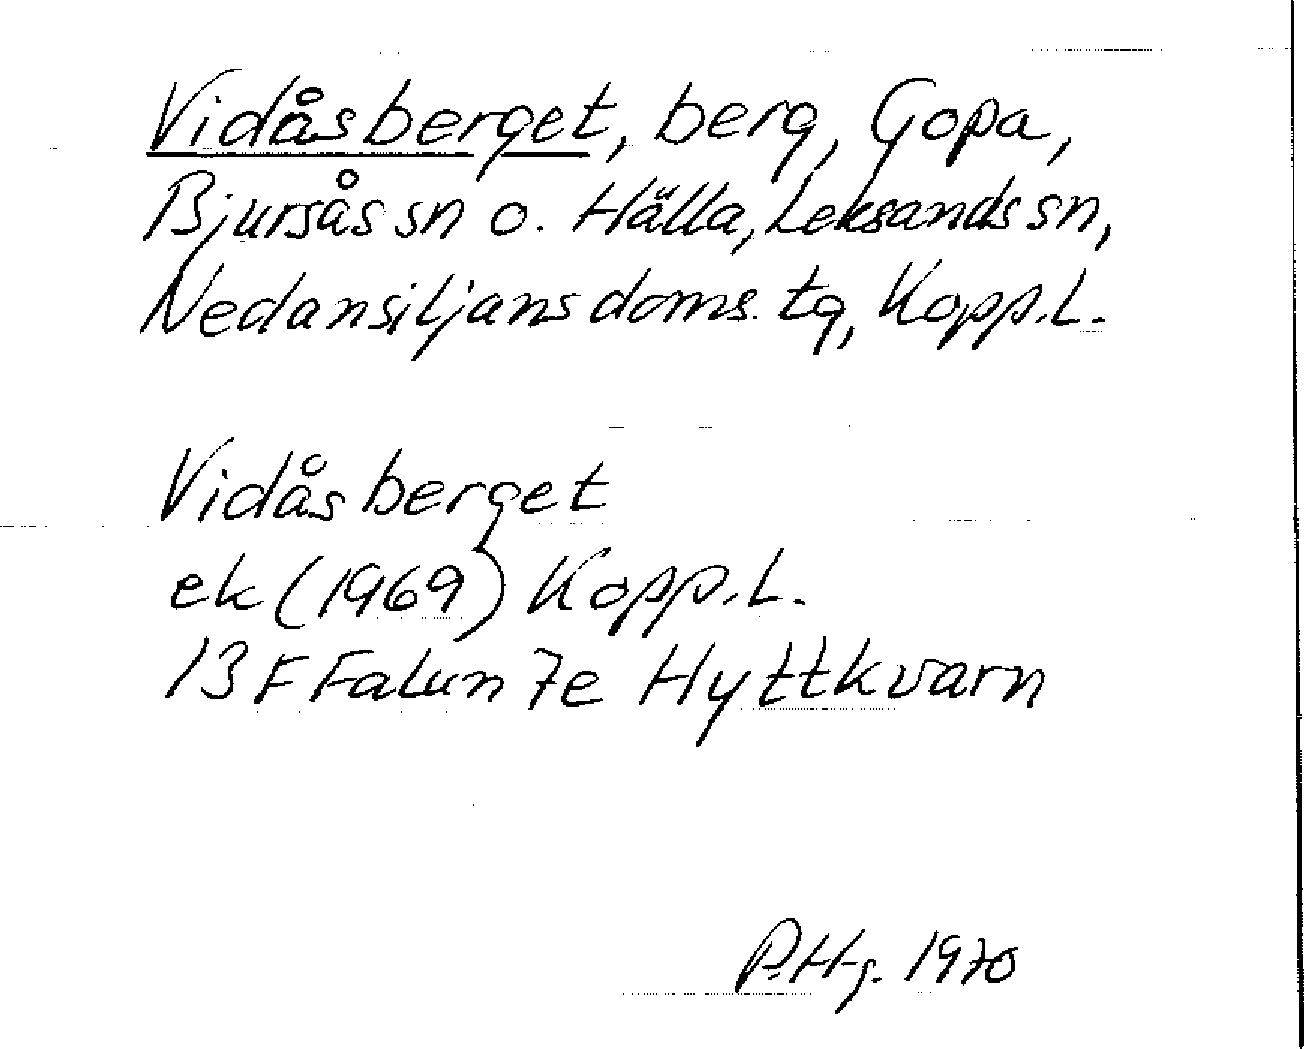 Vidåsberget, berg, Gopa,
Bjursås sn o. Hälla, Leksands sn,
Nedansiljans doms. tg, Kopp.l.
Vidåsberget
ek (1969) Kopp.l.
13 F Falun 7e Hyttkvarn
P.Hg. 1970